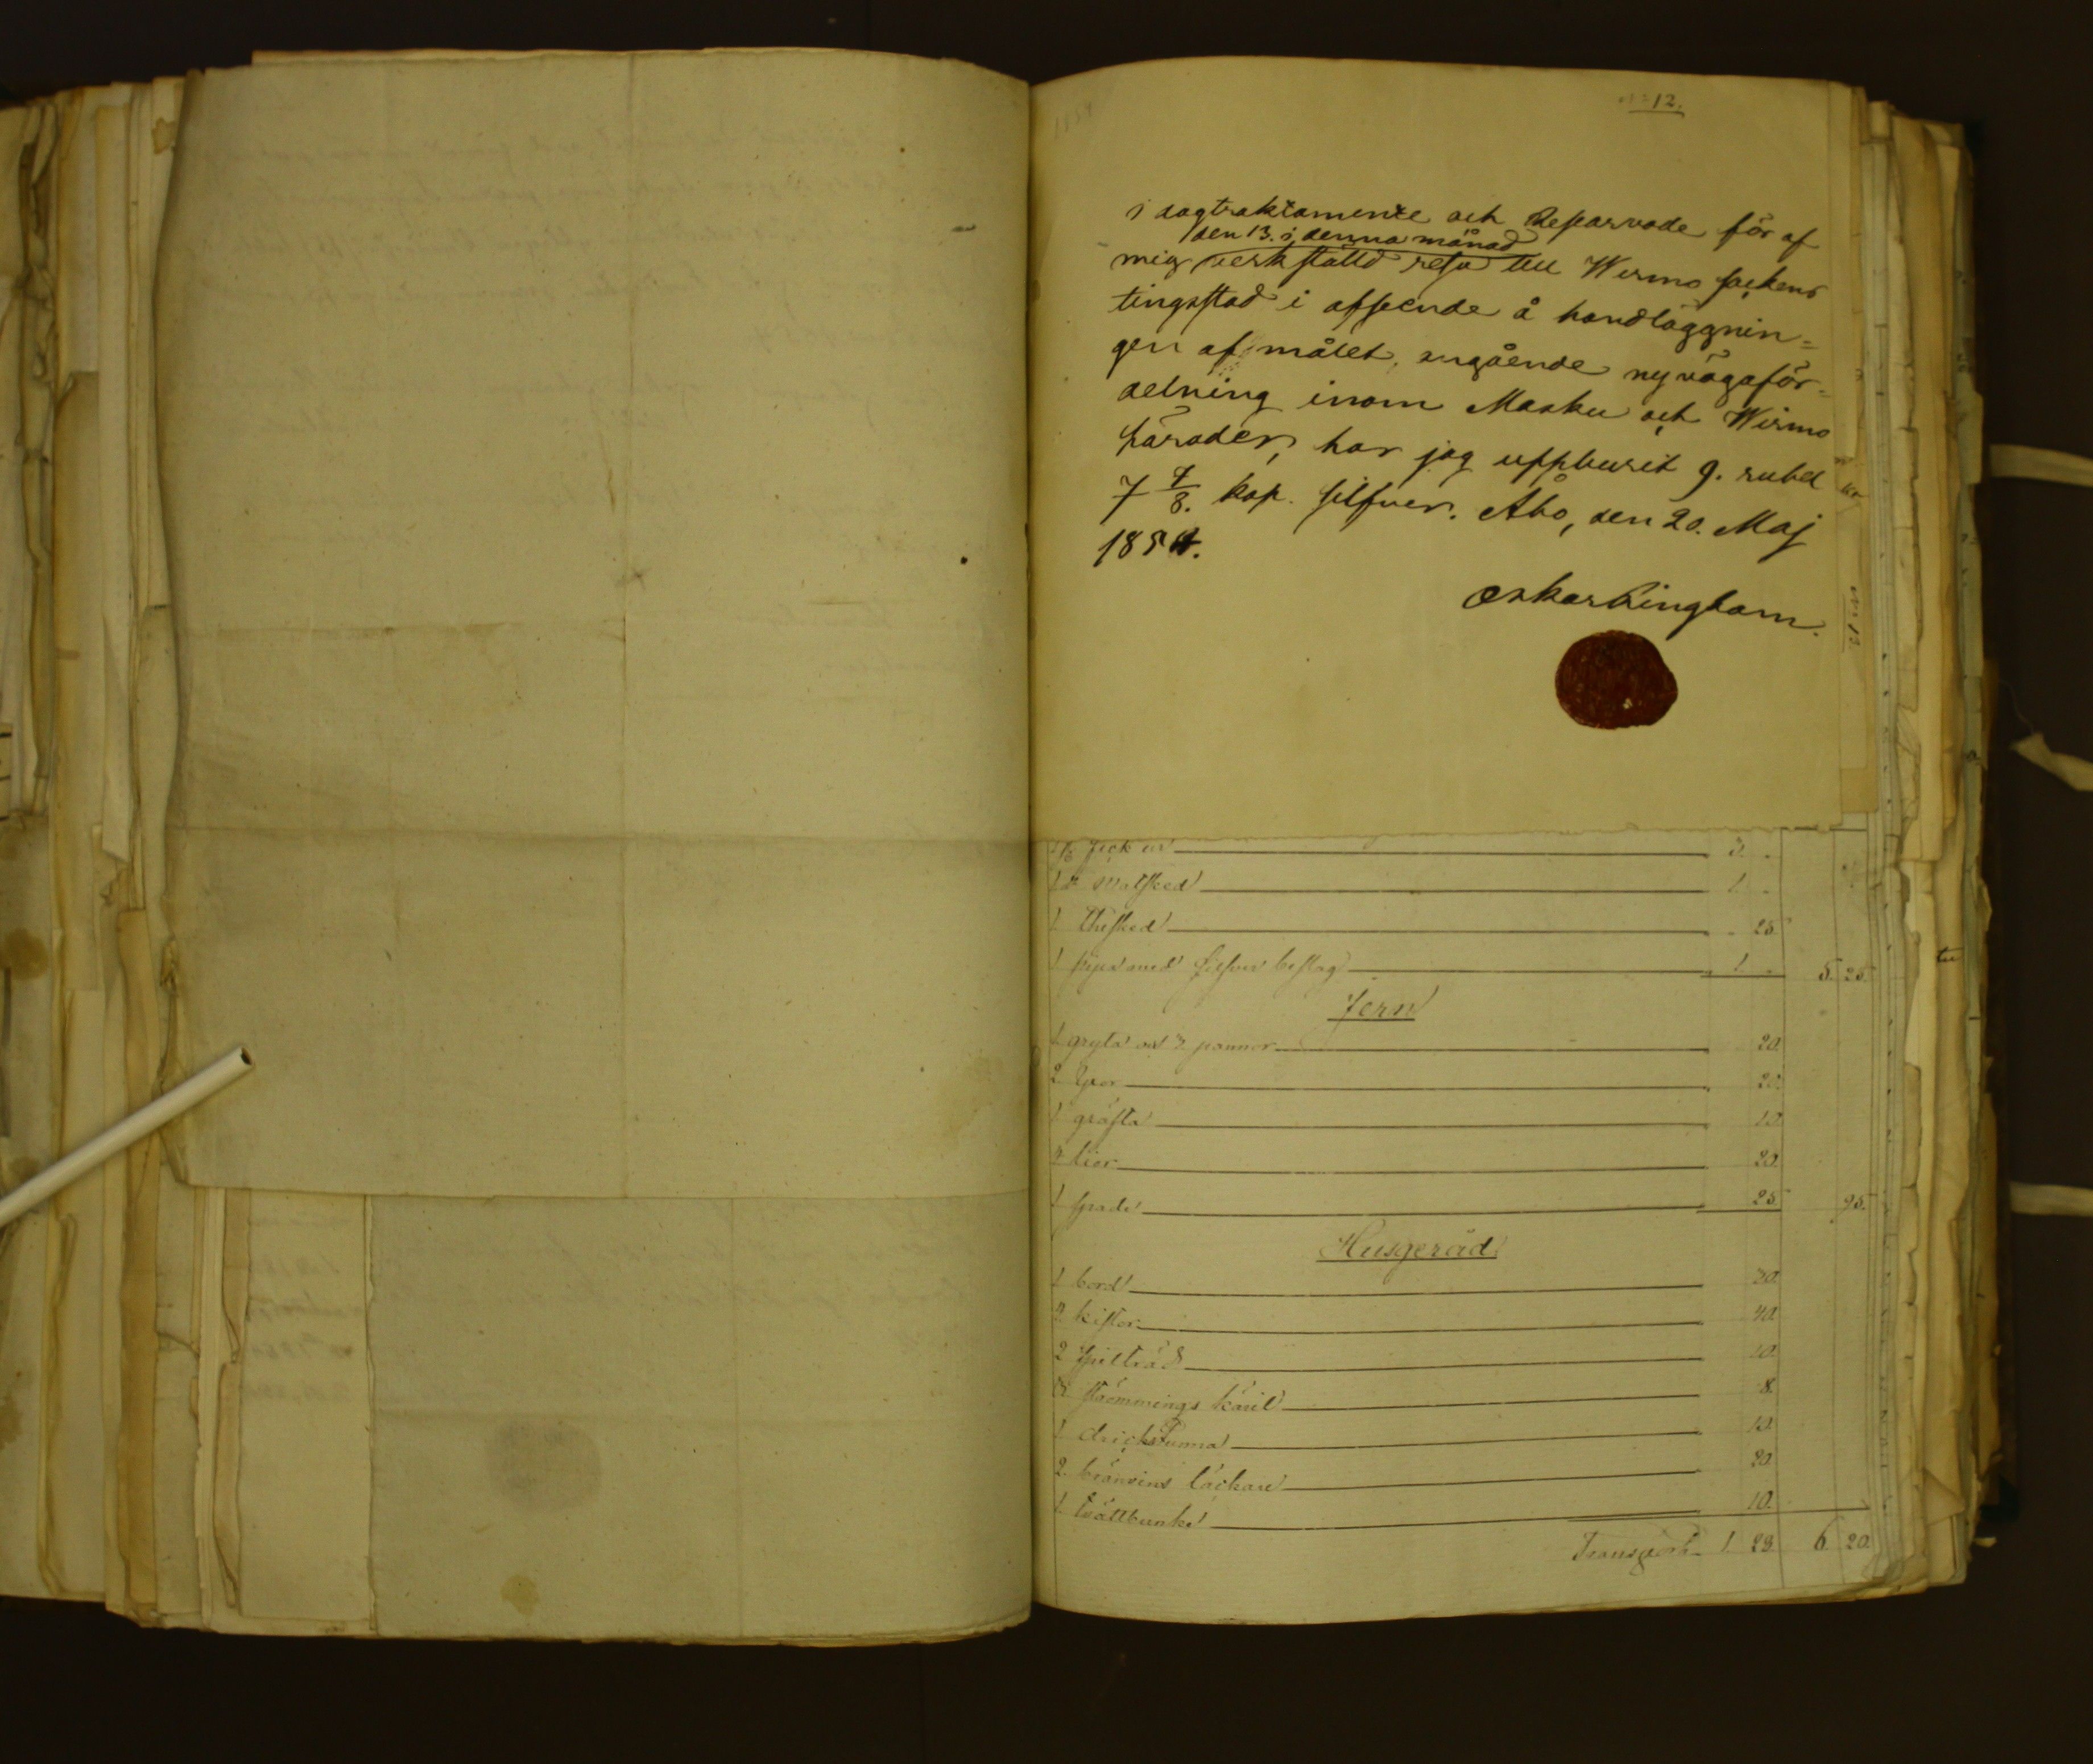 No 12.
i dagtraktamente och Researvode för af
den 13. i denna månad
mig verkställd resa till Wirmo sockens
tingsstad i afseende å handläggnin=
gen af målet, angående ny vägaför=
delning inom Masku och Wirmo
härader, har jag uppburit 9. rubel
7 7/8. kop. silfver. Åbo, den 20. Maj
1854.
Oskar Lingham.
fick ur 3. .
1 d:o matsked 1. .
1 thesked . 25.
1 pipa med silfver beslag 1. . 5. 25.
Jern
1 gryta och 3 pannor 20.
2 yxor 20.
1 gräfta 10.
2 liar 20.
1 spade 25. 95.
Husgeråd
1 bord 30.
2 kistor 40.
2 10.
strömmings käril 8.
1 dricks tunna 10.
2. bränvins läckare 20.
1. tvättbunke 10.
Transport 1. 28. 6. 20.